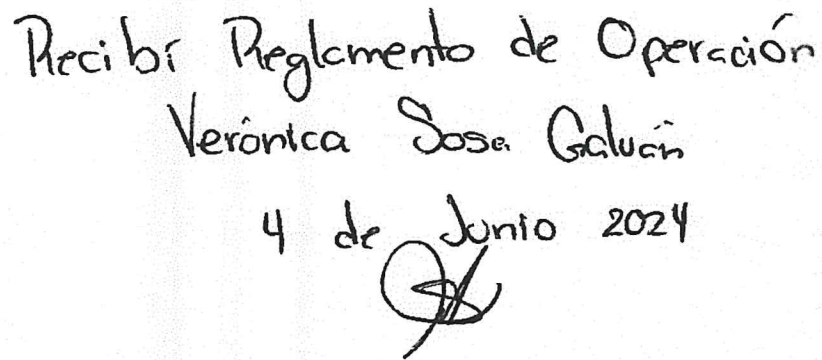 Recibí Reglamento de Operación
Verónica Sosa Galván
4 de Junio 2024